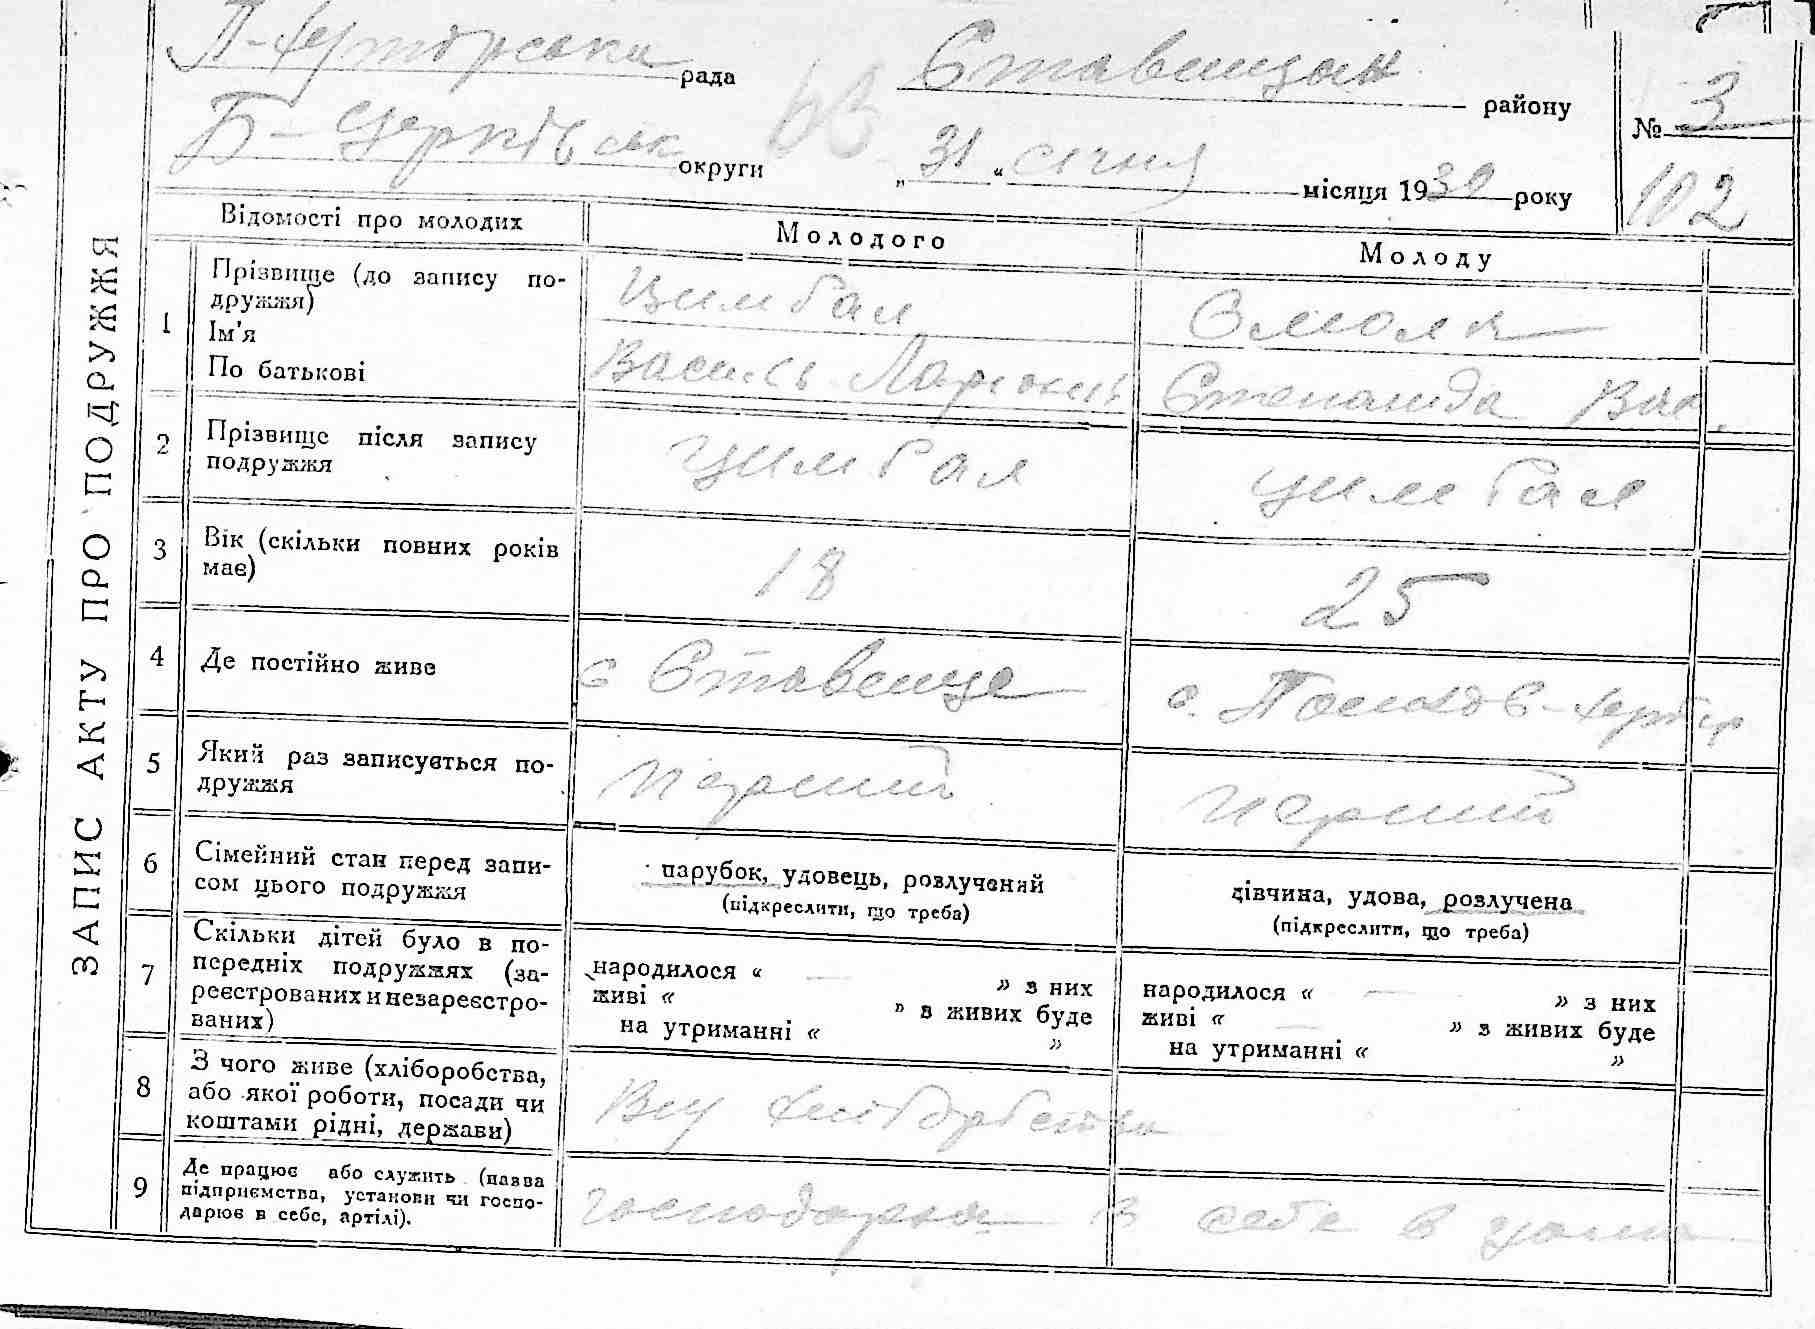 П-Хуторська рада Ставищан району
Б-Церківськ округи „31“ січня місяця 1930 року
№ 3
102
ЗАПИС АКТУ ПРО ПОДРУЖЖЯ
Відомості про молодих Молодого Молоду
1 Прізвище (до запису по-
дружжя)
Ім'я
По батькові
Цимбал
Василь Ларіонів
Степанида Вас.
2 Прізвище після запису
подружжя
Цимбал Цимбал
3 Вік (скільки повних років
має)
18 25
4 Де постійно живе с Ставище с.
5 Який раз записується по-
дружжя
перший перший
6 Сімейний стан перед запи-
сом цього подружжя
парубок, удовець, розлучений
(підкреслити, що треба)
дівчина, удова, розлучена
(підкреслити, що треба)
7 Скільки дітей було в по-
передніх подружжях (за-
реєстрованих и незареєстро-
ваних)
народилося « — » з них
живі « » в живих буде
на утриманні « »
народилося « — » з них
живі « — » з живих буде
на утриманні « »
8 З чого живе (хліборобства,
або якої роботи, посади чи
коштами рідні, держави)
9 Де працює або служить (назва
підприємства, установи чи госпо-
дарює в себе, артілі).
господарює в себе в